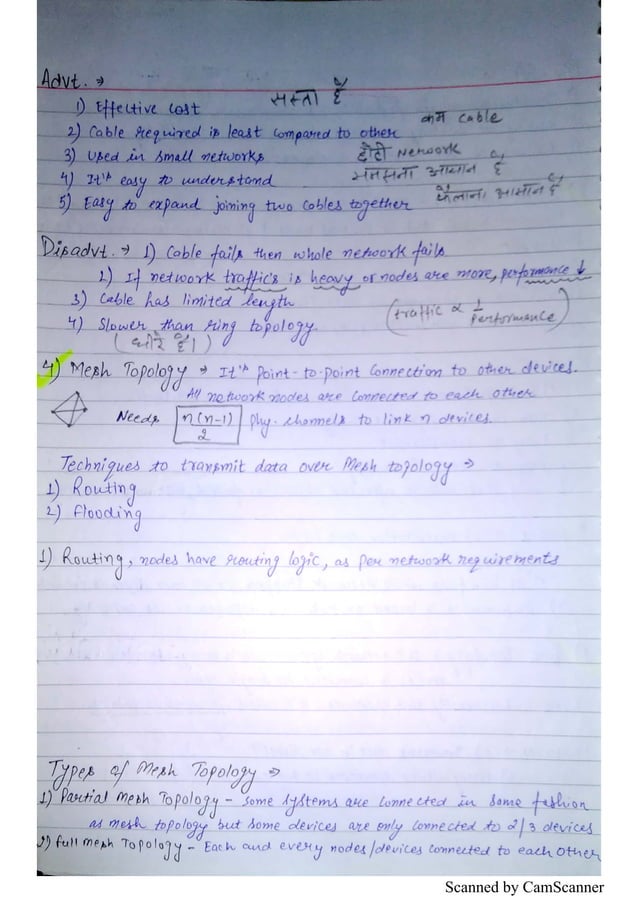 Advt. →
1) Effective Cost सस्ता है
2) Cable required is least compared to other कम cable
3) Used in small networks छोटा Network
4) It's easy to understand समझना आसान है
5) Easy to expand joining two cables together फैलाना आसान है
Disadvt. → 1) Cable fails then whole network fails
2) If network traffic's is heavy or nodes are more, performance ↓
3) Cable has limited length (traffic ∝ 1/performance)
4) Slower than ring topology.
(धीरे है।)
4) Mesh Topology → It's point-to-point connection to other devices.
All network nodes are connected to each other
Needs n(n-1)/2 phy. channels to link n devices.
Techniques to transmit data over Mesh topology →
1) Routing
2) Flooding
1) Routing, nodes have routing logic, as per network requirements
Types of Mesh Topology →
1) Partial mesh Topology - some systems are connected in same fashion
as mesh topology but some devices are only connected to 2/3 devices
2) Full mesh Topology - Each and every nodes/devices connected to each other
Scanned by CamScanner